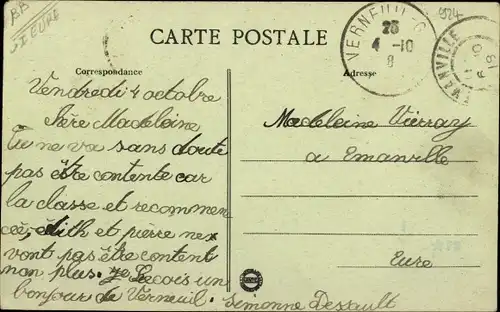 BB
EURE
924
CARTE POSTALE
Correspondance
Adresse
VERNEUIL
25
4 -10
8
EMANVILLE
Vendredi 4 octobre
Chère Madeleine
Tu ne va sans doute
pas être contente car
la classe et recommen
cée, édith et pierre ne
vont pas être content
non plus. Je Recois un
bonjour de Verneuil. Simonne Dessault
Madeleine Vierray
a Emanville
Eure